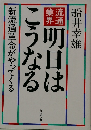 船井幸雄
流通業界
明日は
こうなる
新流通革命がやってくる